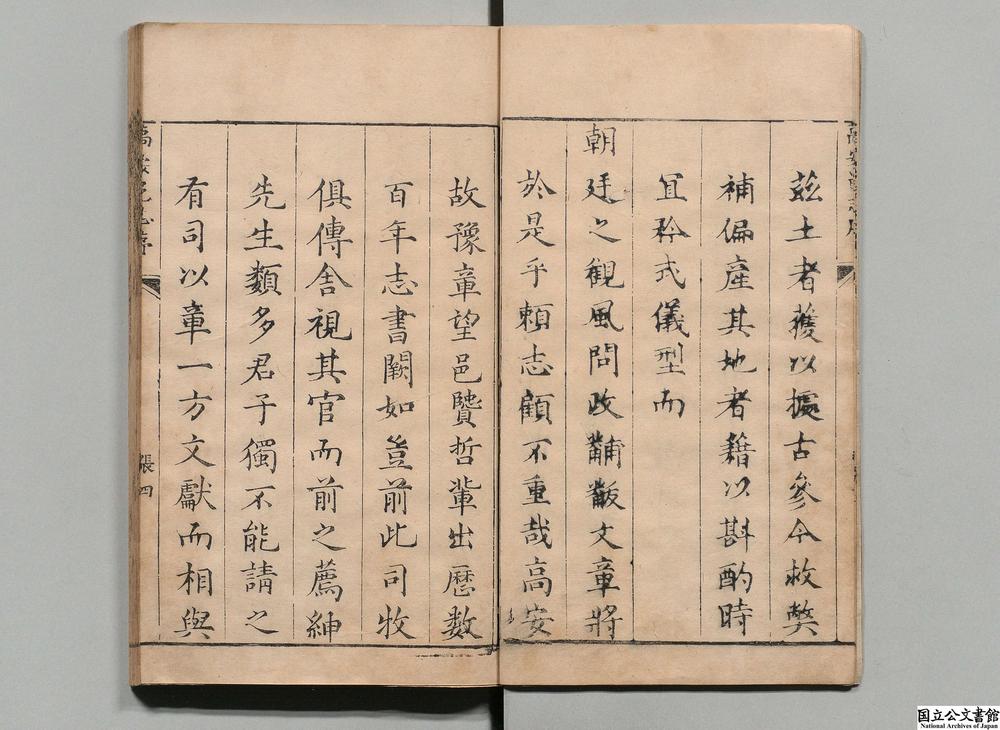 茲土者獲以據古參今救獘
補偏產其地者籍以斟酌時
宜矜式儀型而
朝廷之觀風問政黼黻文章將
於是乎頼志顧不重哉高安
故豫章望邑賢哲輩出歷數
百年志書闕如豈前此司牧
俱傳舍視其官而前之薦紳
先生類多君子獨不能請之
有司以章一方文獻而相與
高安縣志序
張四
国立公文書館
National Archives of Japan